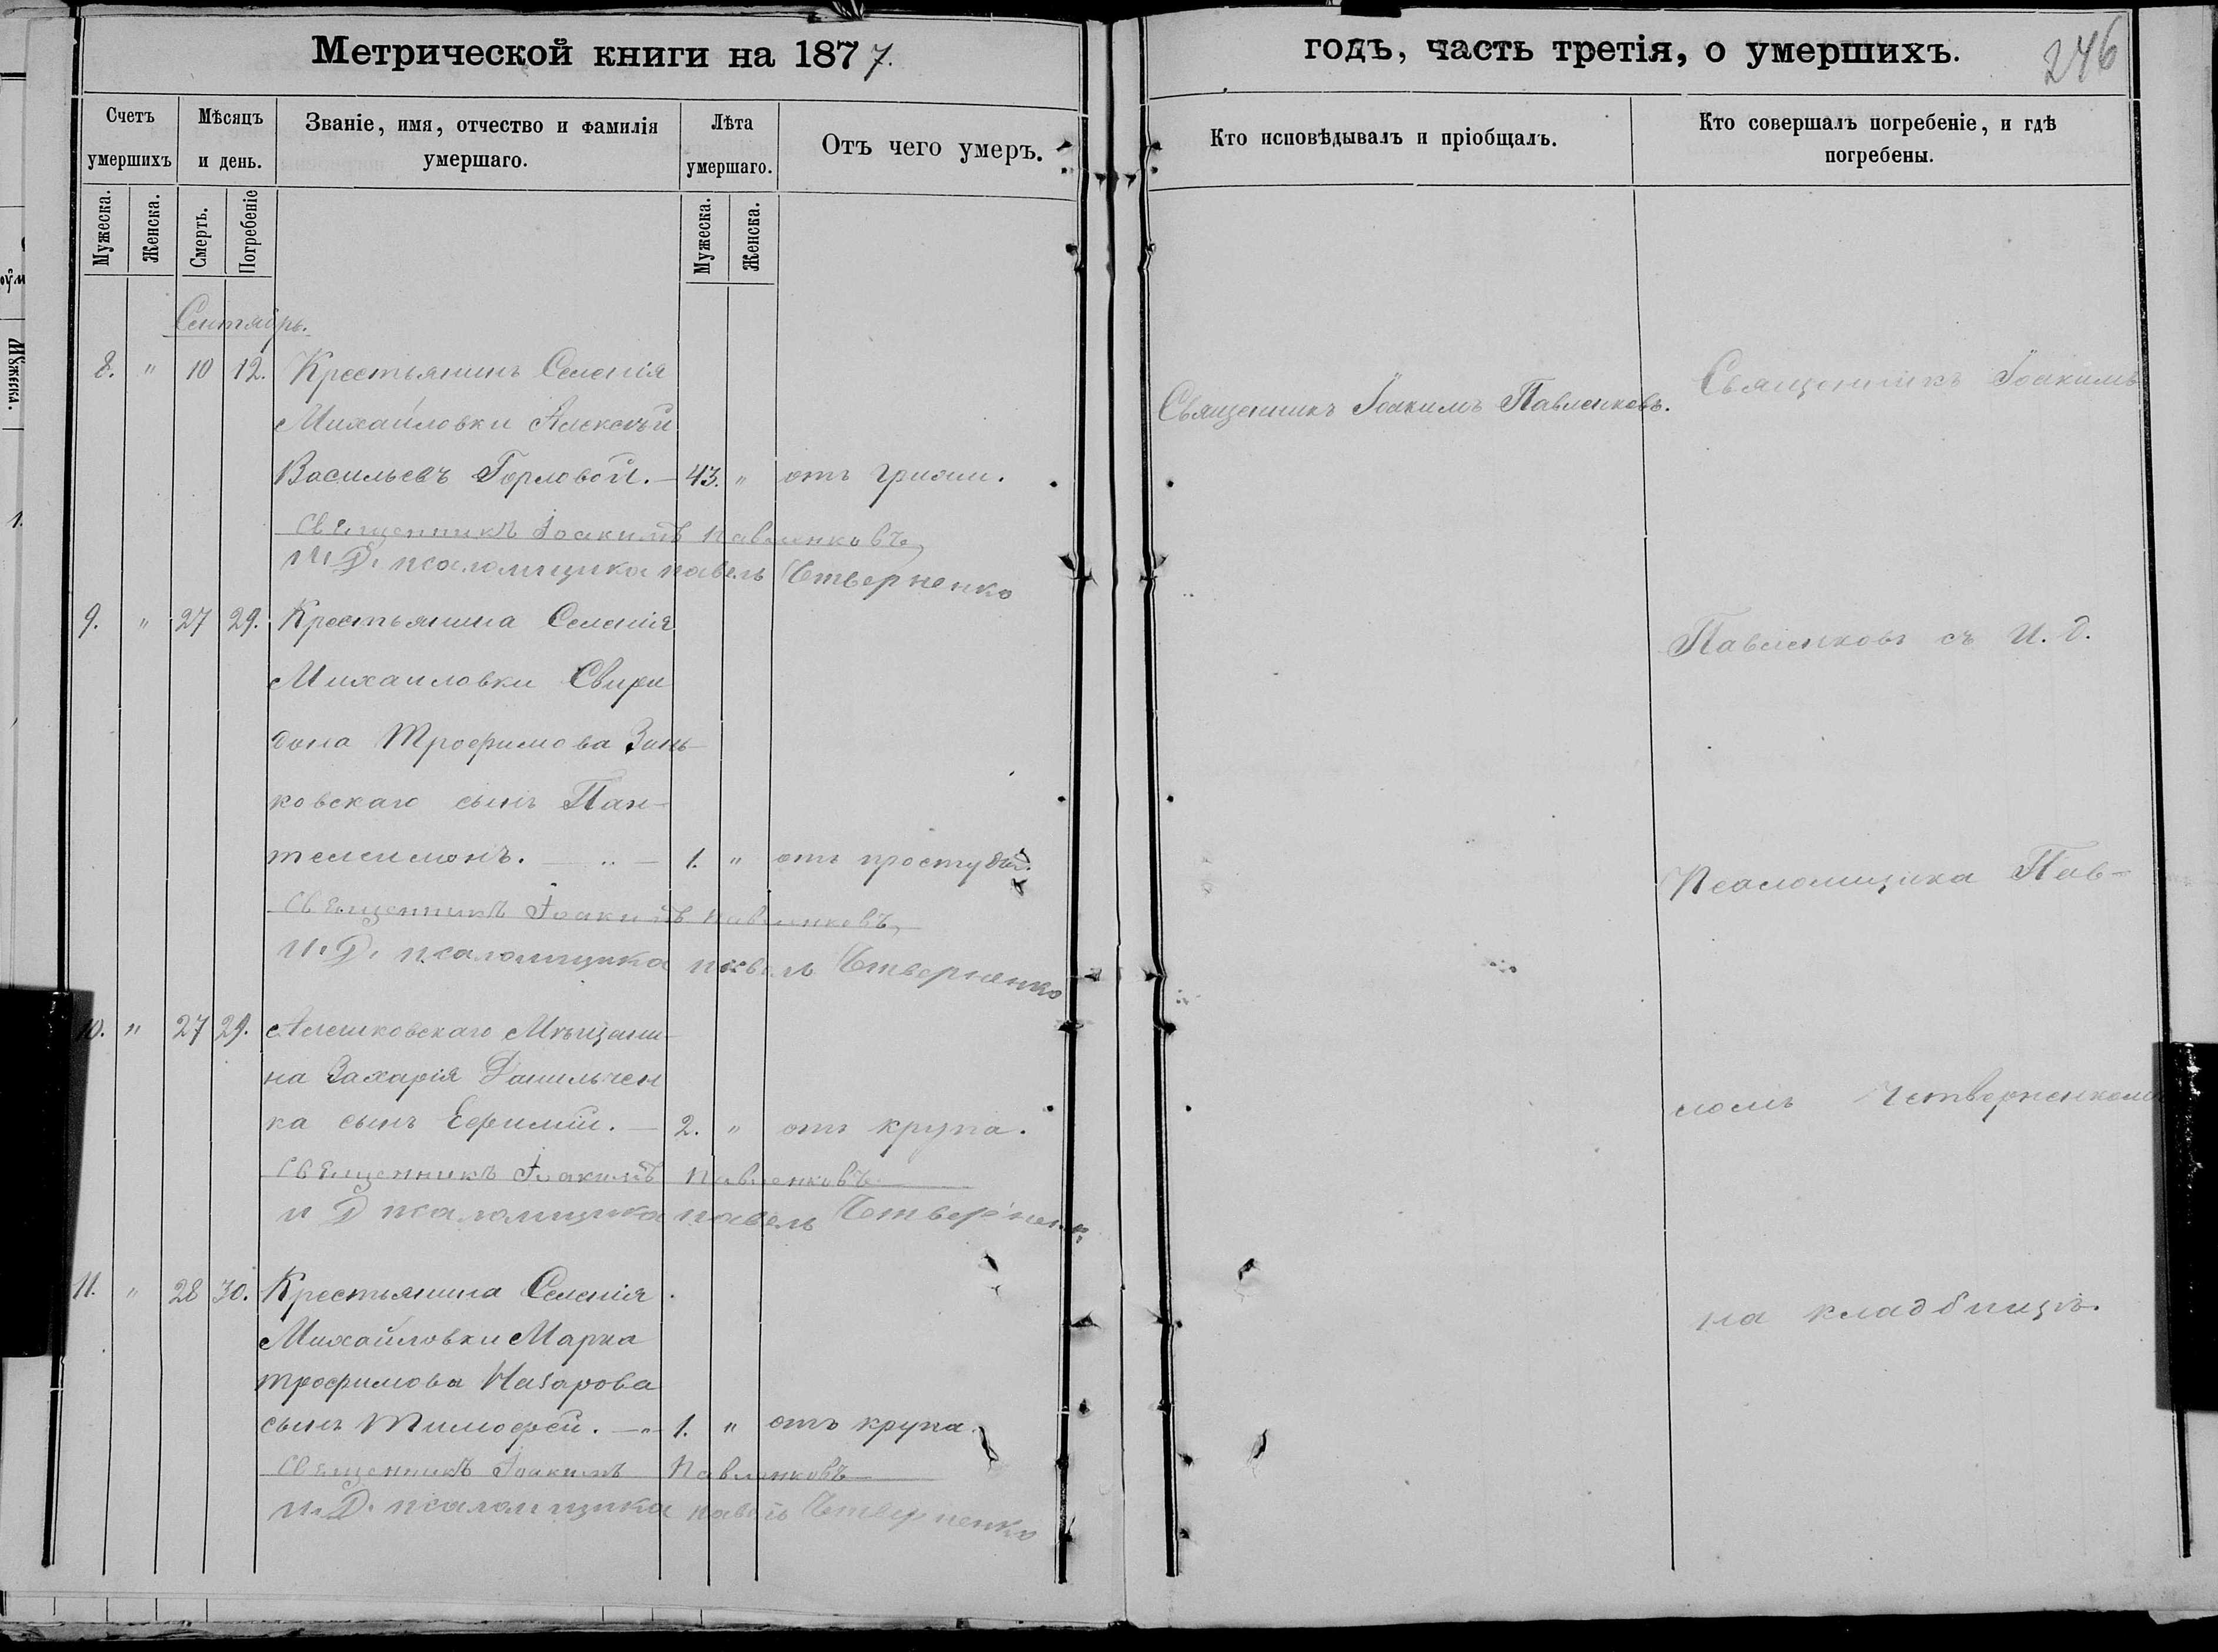 Метрической книги на 1877.
Счетъ умершихъ
Мѣсяцъ и день.
Званіе, имя, отчество и фамилія умершаго.
Лѣта умершаго.
Отъ чего умеръ.
Мужеска.
Женска.
Смерть.
Погребеніе
Мужеска.
Женска.
Сентябрь.
8. " 10 12. Крестьянинъ Селенія
Михайловки Алексѣй
Васильевъ Горловой. — 43. " отъ грижи.
Священникъ Іоакимъ Павленковъ
И. Д. псаломщика Павелъ Четверненко
9. " 27 29. Крестьянина Селенія
Михаиловки Свири
дона Трофимова Зинь-
ковскаго сынъ Пан-
телеимонъ. — " — 1. " отъ простуды.
Священникъ Іоакимъ Павленковъ
И. Д. псаломщика Павелъ Четверненко
10. " 27 29. Алешковскаго Мѣщани-
на Захарія Данильчен
ка сынъ Ефимій. — 2. " отъ крупа.
Священникъ Іоакимъ Павленковъ
И Д псаломщика Павелъ Четверненк
11. " 28 30. Крестьянина Селенія
Михайловки Марка
Трофимова Назарова
сынъ Тимофей. —"— 1. " отъ крупа.
Священникъ Іоакимъ Павленковъ
И. Д. псаломщика Павелъ Четверненко
годъ, часть третія, о умершихъ.
246
Кто исповѣдывалъ и пріобщалъ.
Кто совершалъ погребеніе, и гдѣ погребены.
Священникъ Іоакимъ Павленковъ.
Священникъ Іоакимъ
Павленковъ съ И. д.
Псаломщика Пав-
ломъ Четверненкомъ
на кладбищѣ.
Мужеска.
1.